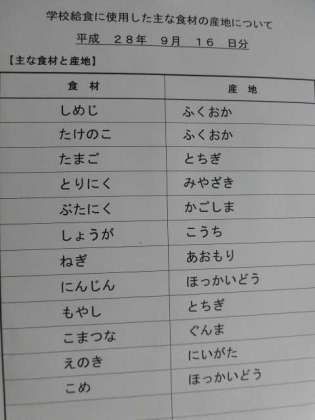 学校給食に使用した主な食材の産地について
平成 28年 9月 16 日分
【主な食材と産地】
食 材 産 地
しめじ ふくおか
たけのこ ふくおか
たまご とちぎ
とりにく みやざき
ぶたにく かごしま
しょうが こうち
ねぎ あおもり
にんじん ほっかいどう
もやし とちぎ
こまつな ぐんま
えのき にいがた
こめ ほっかいどう